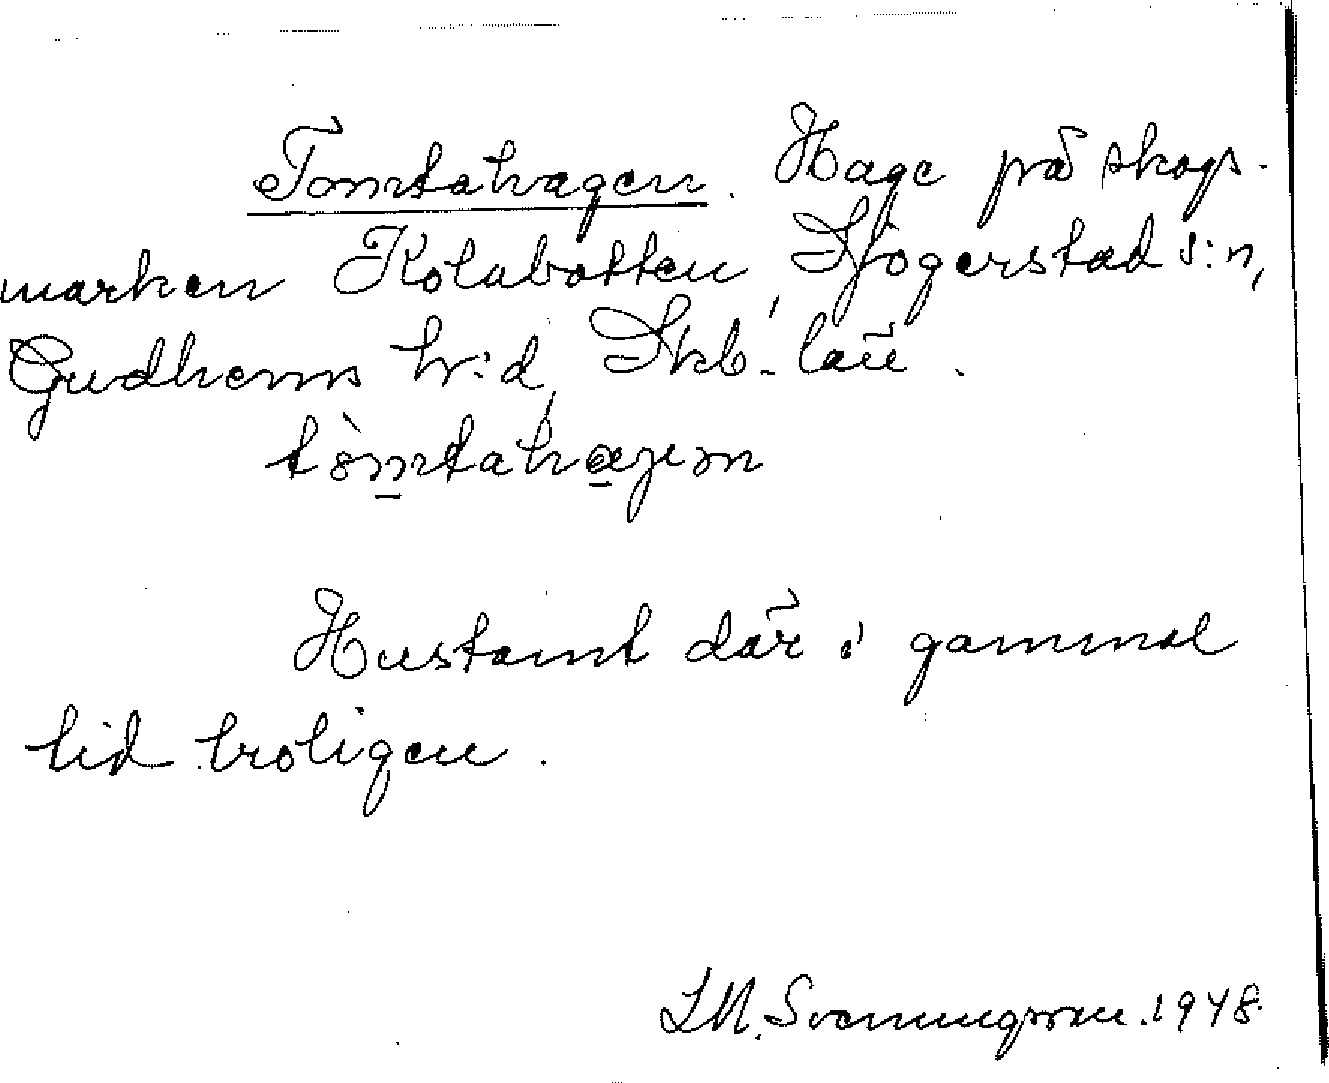 Tomtahagen. Hage på skogs-
marken Kolabotten, Sjogerstad s:n,
Gudhems h:d, Skb. län.
tòmtahagen
Hustomt där i gammal
tid troligen.
L.M. Svenungsson. 1948.